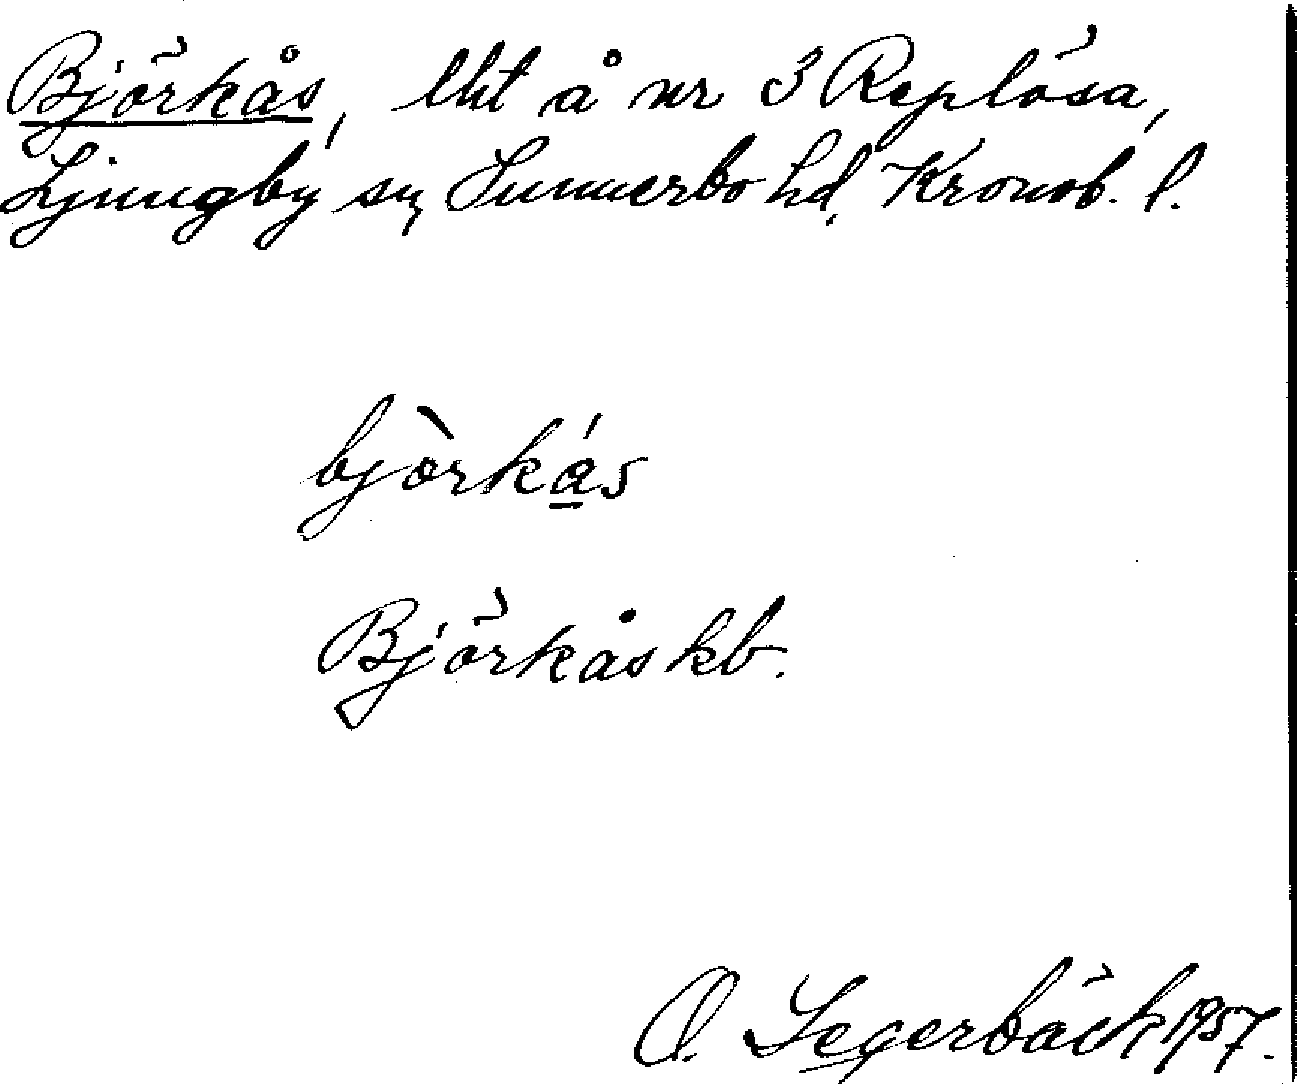 Björkås, lht å nr 3 Replösa,
Ljungby sn, Sunnerbo hd, Kronob. l.
bjòrkás
Björkås kb.
O. Segerbäck 1957.